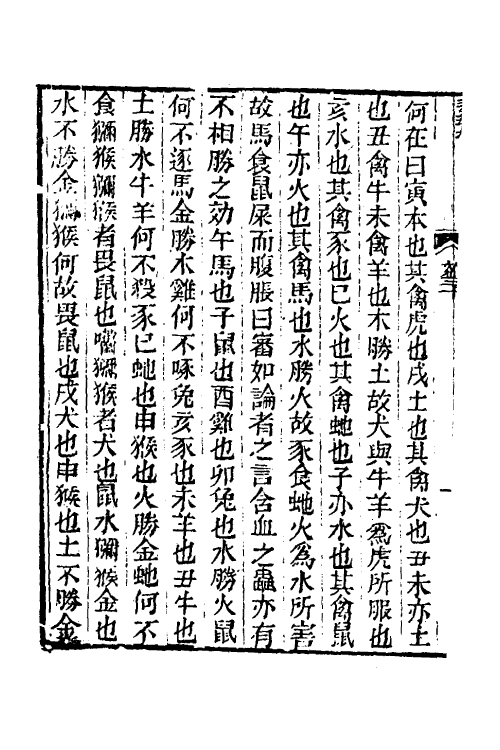 何在曰寅木也其禽虎也戌土也其禽犬也丑未亦土
也丑禽牛未禽羊也木勝土故犬與牛羊為虎所服也
亥水也其禽豕也巳火也其禽虵也子亦水也其禽鼠
也午亦火也其禽馬也水勝火故豕食虵火為水所害
故馬食鼠屎而腹脹曰審如論者之言含血之蟲亦有
不相勝之効午馬也子鼠也酉雞也卯兔也水勝火鼠
何不逐馬金勝木雞何不啄兔亥豕也未羊也丑牛也
土勝水牛羊何不殺豕巳虵也申猴也火勝金虵何不
食獼猴獼猴者畏鼠也囓獼猴者犬也鼠水獼猴金也
水不勝金獼猴何故畏鼠也戌犬也申猴也土不勝金